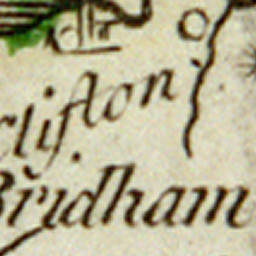 clifton
Bridham